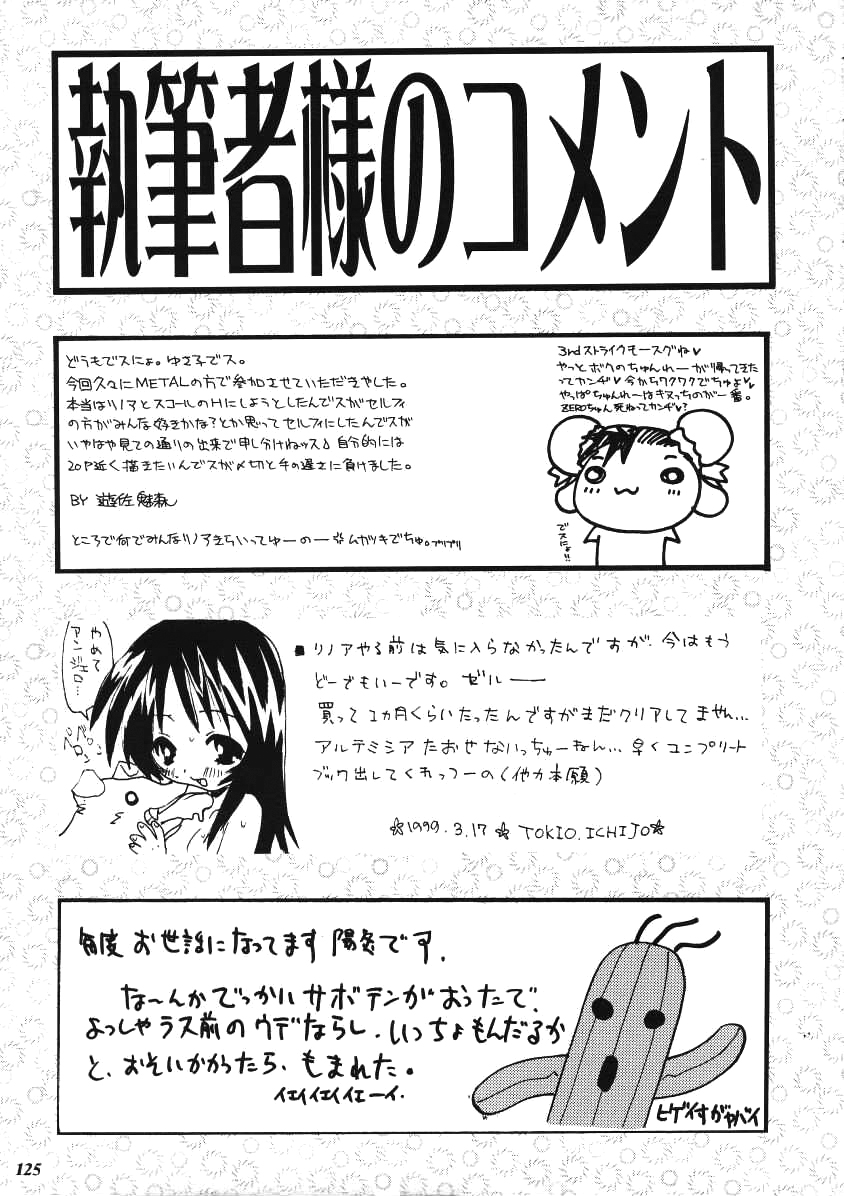 執筆者様のコメント
どうもでスにょ。ゆき子でス。
今回久々にMETALの方で参加させていただきやした。
本当はリノアとスコールのHにしようとしたんでスがセルフィ
の方がみんな好きかな?とか思ってセルフィにしたんでスが
いやはや見ての通りの出来で申し分けねッス♪自分的には
20P近く描きたいんでスが〆切と手の遅さに負けました。
BY 遊佐魅森
ところで何でみんなリノアきらいってゆーのー☆ムカツキでちゅ。プリプリ
3rdストライクモースグね♥
やっとボクのちゅんれーが帰ってきた
ってカンヂ♥今からワクワクでちゅよ♥
やっぱちゅんれ〜はキヌっちのが一番。
ZEROちゅん死ねってカンヂ♥?
でスにょ!!
やめて
アンジェロ…
ペロン
ペロン
■リノアやる前は気に入らなかったんですが、今はもう
どーでもいーです。ゼルー
買って1ヵ月くらいたったんですがまだクリアしてません…
アルテミシアたおせないっちゅーねん…早くコンプリート
ブック出してくれっつーの(他力本願)
☆1999.3.17☆ TOKIO.ICHIJO☆
毎度お世話になってます 陽炎です.
な〜んかでっかいサボテンがおったで、
よっしゃラス前のウデならし、いっちょもんだるか
と、おそいかかったら、もまれた。
イエイイエイイエーイ.
ヒゲイすがヤバイ
125